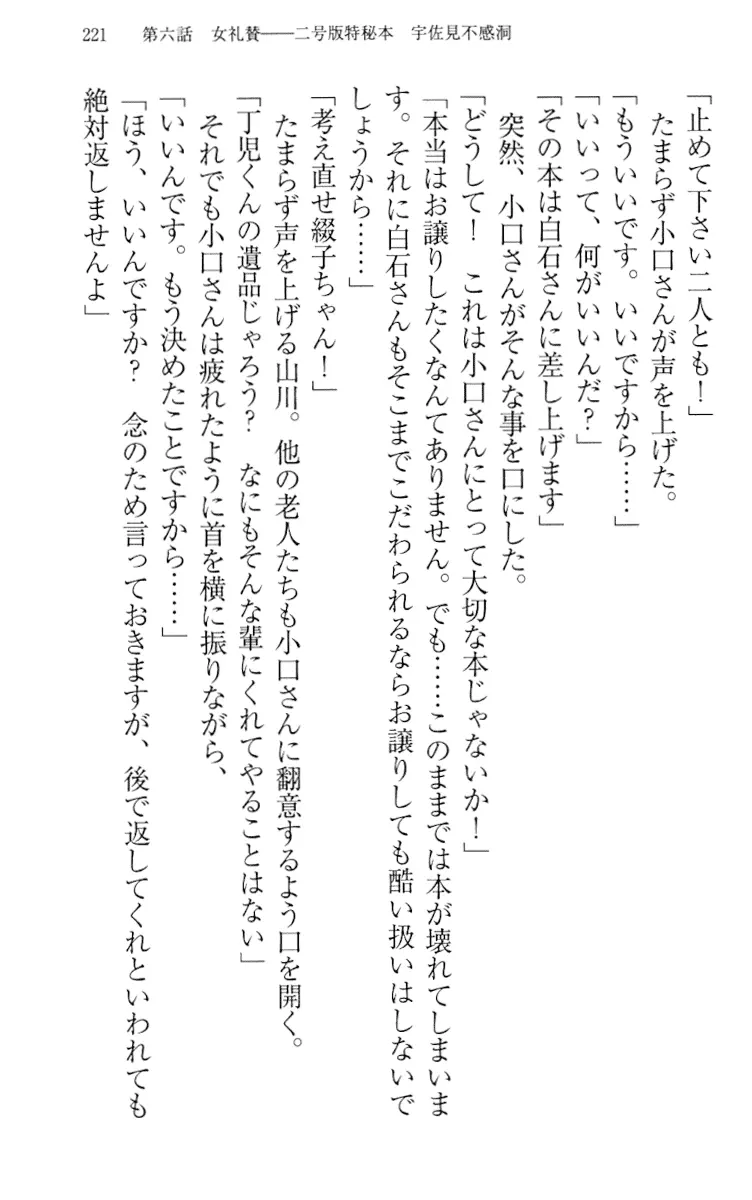 221　第六話　女礼賛――二号版特秘本　宇佐見不感洞
「止めて下さい二人とも！」
　たまらず小口さんが声を上げた。
「もういいです。いいですから……」
「いいって、何がいいんだ？」
「その本は白石さんに差し上げます」
　突然、小口さんがそんな事を口にした。
「どうして！　これは小口さんにとって大切な本じゃないか！」
「本当はお譲りしたくなんてありません。でも……このままでは本が壊れてしまいま
す。それに白石さんもそこまでこだわられるならお譲りしても酷い扱いはしないで
しょうから……」
「考え直せ綴子ちゃん！」
　たまらず声を上げる山川。他の老人たちも小口さんに翻意するよう口を開く。
「丁児くんの遺品じゃろう？　なにもそんな輩にくれてやることはない」
　それでも小口さんは疲れたように首を横に振りながら、
「いいんです。もう決めたことですから……」
「ほう、いいんですか？　念のため言っておきますが、後で返してくれといわれても
絶対返しませんよ」